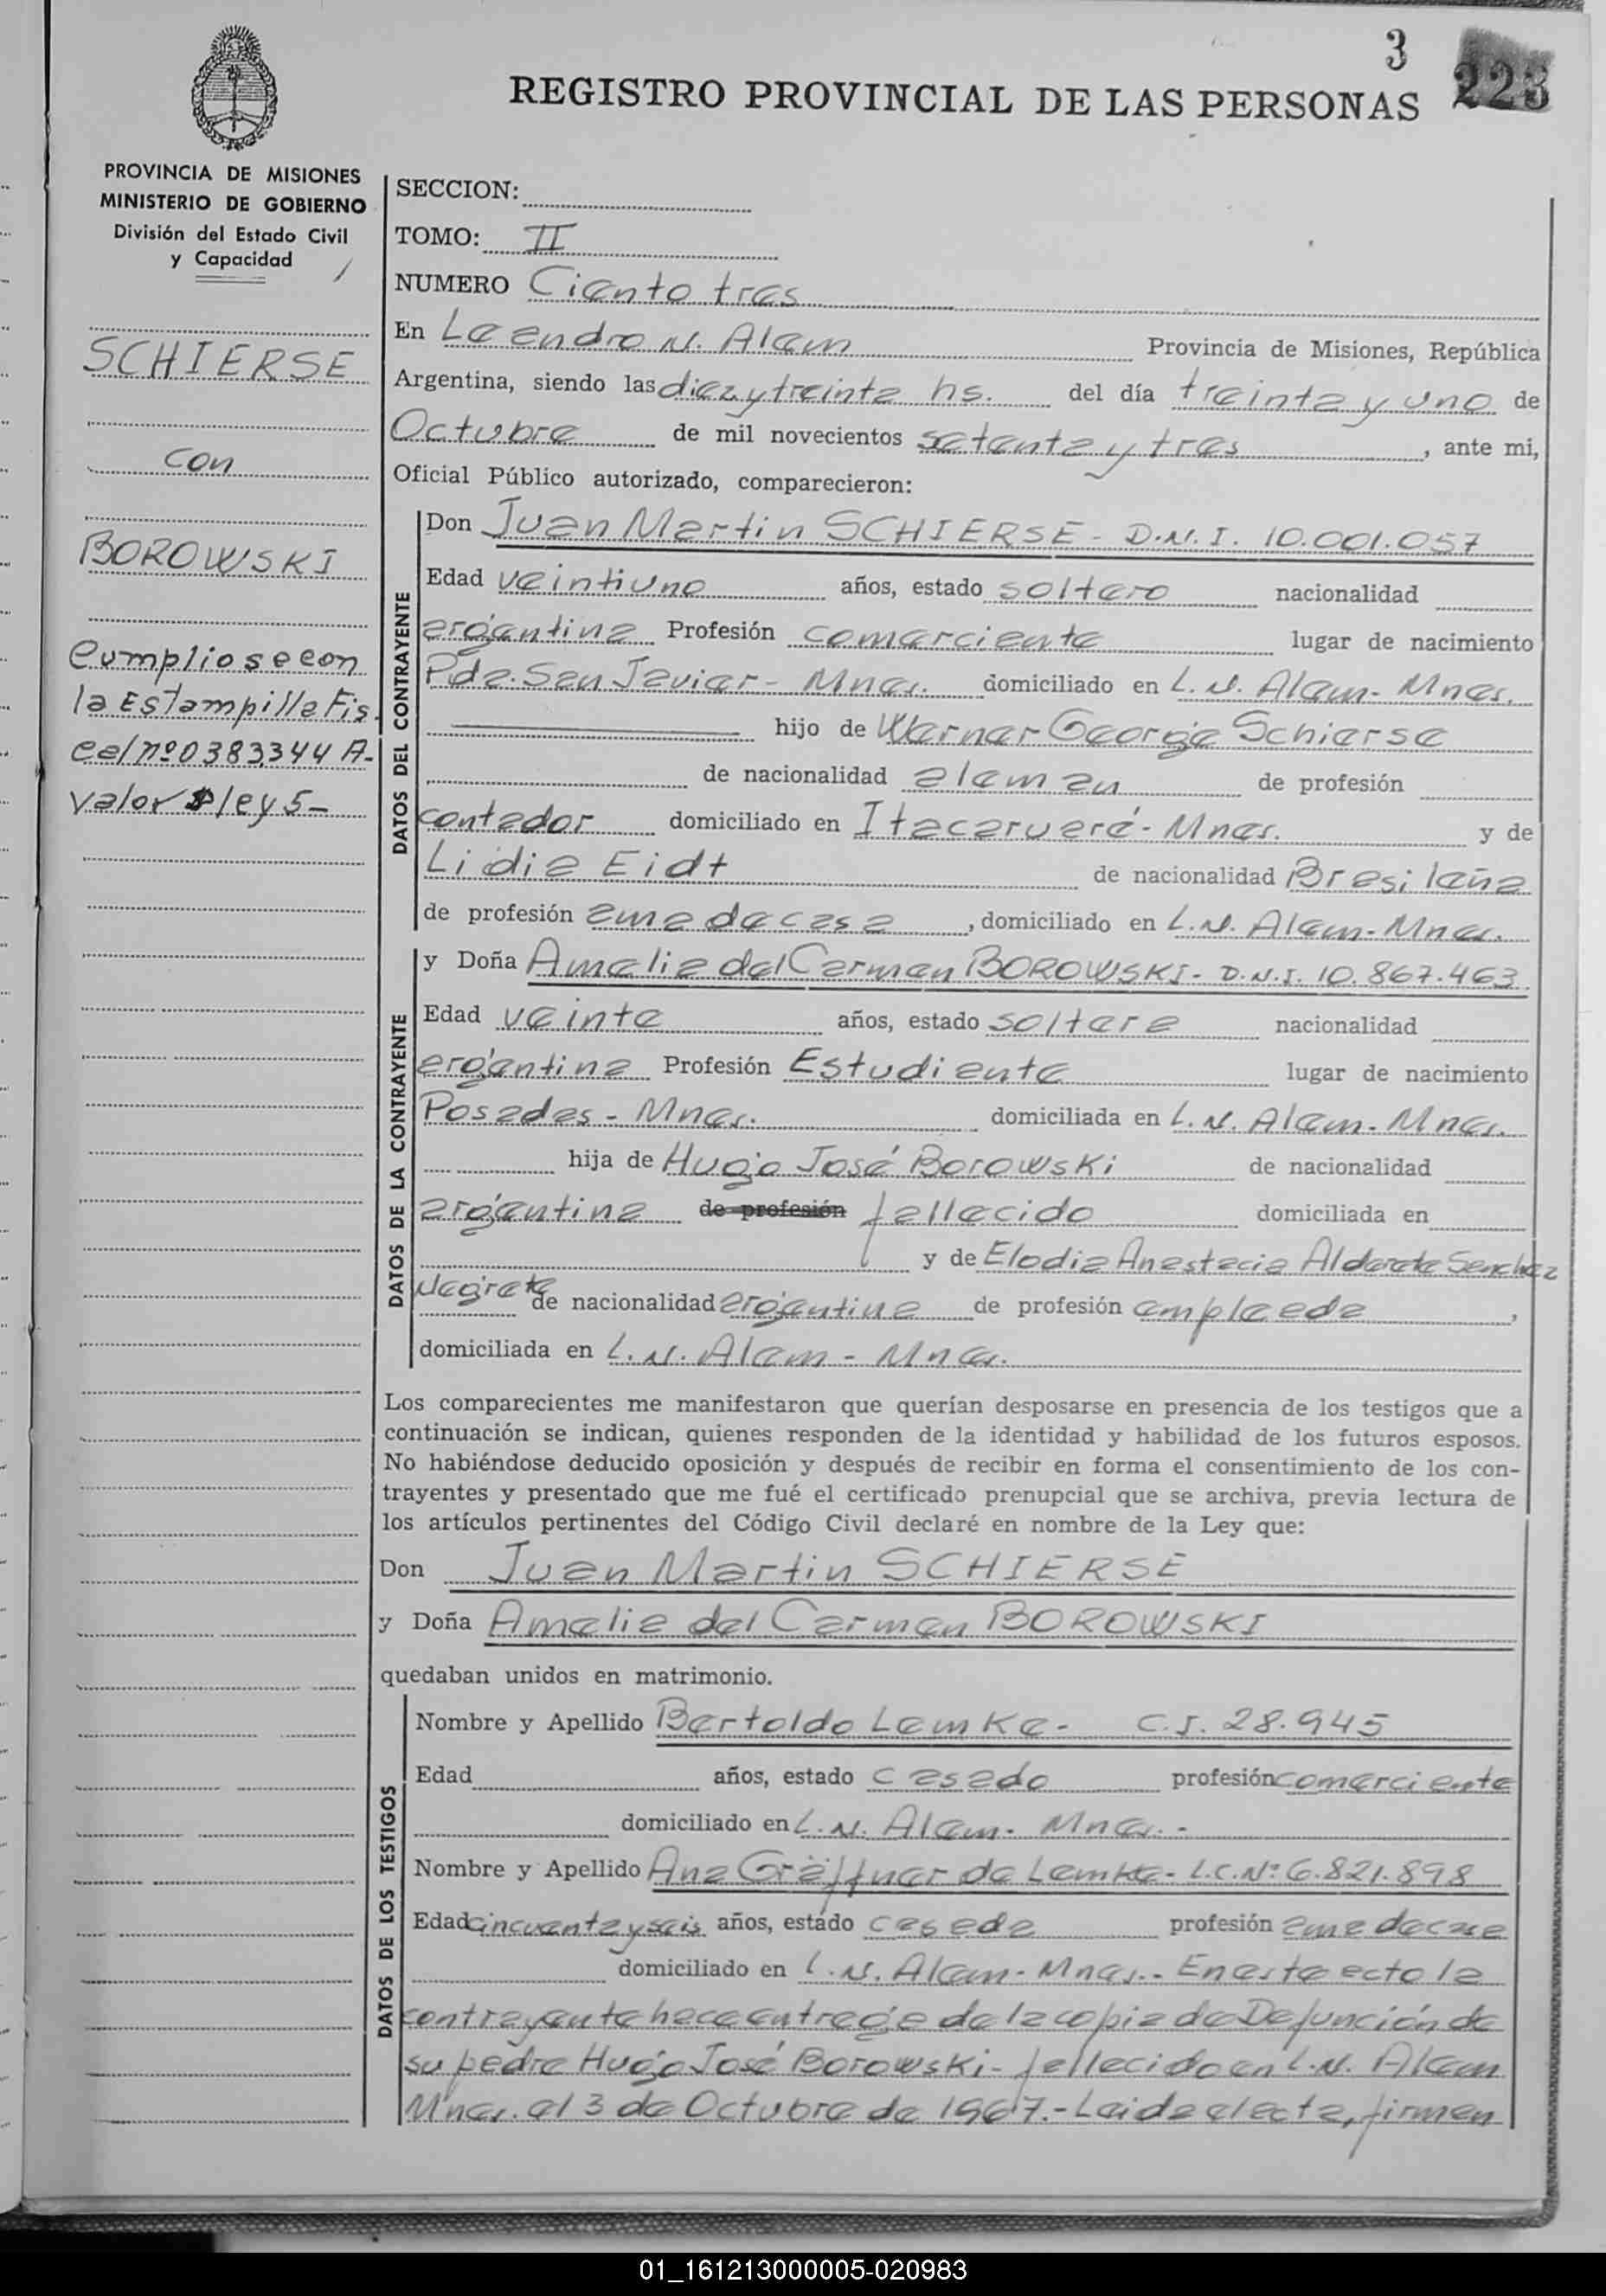 3
223
REGISTRO PROVINCIAL DE LAS PERSONAS
PROVINCIA DE MISIONES
MINISTERIO DE GOBIERNO
División del Estado Civil
y Capacidad
SCHIERSE
con
BOROWSKI
Cumpliose con
la Estampilla Fis
cal nº 0383344 A-
valor $ ley 5-
SECCION:
TOMO: II
NUMERO Ciento tres
En Leandro N. Alem Provincia de Misiones, República
Argentina, siendo las diez y treinta hs. del día treinta y uno de
Octubre de mil novecientos setenta y tres, ante mi,
Oficial Público autorizado, comparecieron:
DATOS DEL CONTRAYENTE
Don Juan Martin SCHIERSE - D.N.I. 10.001.057
Edad veintiuno años, estado soltero nacionalidad
argentina Profesión comerciante lugar de nacimiento
Pda. San Javier - Mnes. domiciliado en L.N. Alem - Mnes.
hijo de Werner George Schierse
de nacionalidad aleman de profesión
contador domiciliado en Itacaruaré - Mnes. y de
Lidia Eidt de nacionalidad Brasilaña
de profesión ama de casa, domiciliado en L.N. Alem - Mnes.
DATOS DE LA CONTRAYENTE
y Doña Amelia del Carmen BOROWSKI - D.N.I. 10.867.463
Edad veinte años, estado soltera nacionalidad
argentina Profesión Estudiante lugar de nacimiento
Posadas - Mnes. domiciliada en L.N. Alem - Mnes.
hija de Hugo José Borowski de nacionalidad
argentina de profesión fallecido domiciliada en
y de Elodia Anastacia Alderete Sanchez
Negrete de nacionalidad argentina de profesión empleada,
domiciliada en L.N. Alem - Mnes.
Los comparecientes me manifestaron que querían desposarse en presencia de los testigos que a
continuación se indican, quienes responden de la identidad y habilidad de los futuros esposos.
No habiéndose deducido oposición y después de recibir en forma el consentimiento de los con-
trayentes y presentado que me fué el certificado prenupcial que se archiva, previa lectura de
los artículos pertinentes del Código Civil declaré en nombre de la Ley que:
Don Juan Martin SCHIERSE
y Doña Amelia del Carmen BOROWSKI
quedaban unidos en matrimonio.
DATOS DE LOS TESTIGOS
Nombre y Apellido Bertoldo Lemke - C.I. 28.945
Edad años, estado casado profesión comerciante
domiciliado en L.N. Alem - Mnes. -
Nombre y Apellido Ana Gräffner de Lemke - L.C. Nº 6.821.898
Edad cincuenta y seis años, estado casada profesión ama de casa
domiciliado en L.N. Alem - Mnes. - En este acto la
contrayente hace entrega de la copia de Defunción de
su padre Hugo José Borowski - fallecido en L.N. Alem
Mnes. el 3 de Octubre de 1967. - Leida el acta, firman
01_161213000005-020983